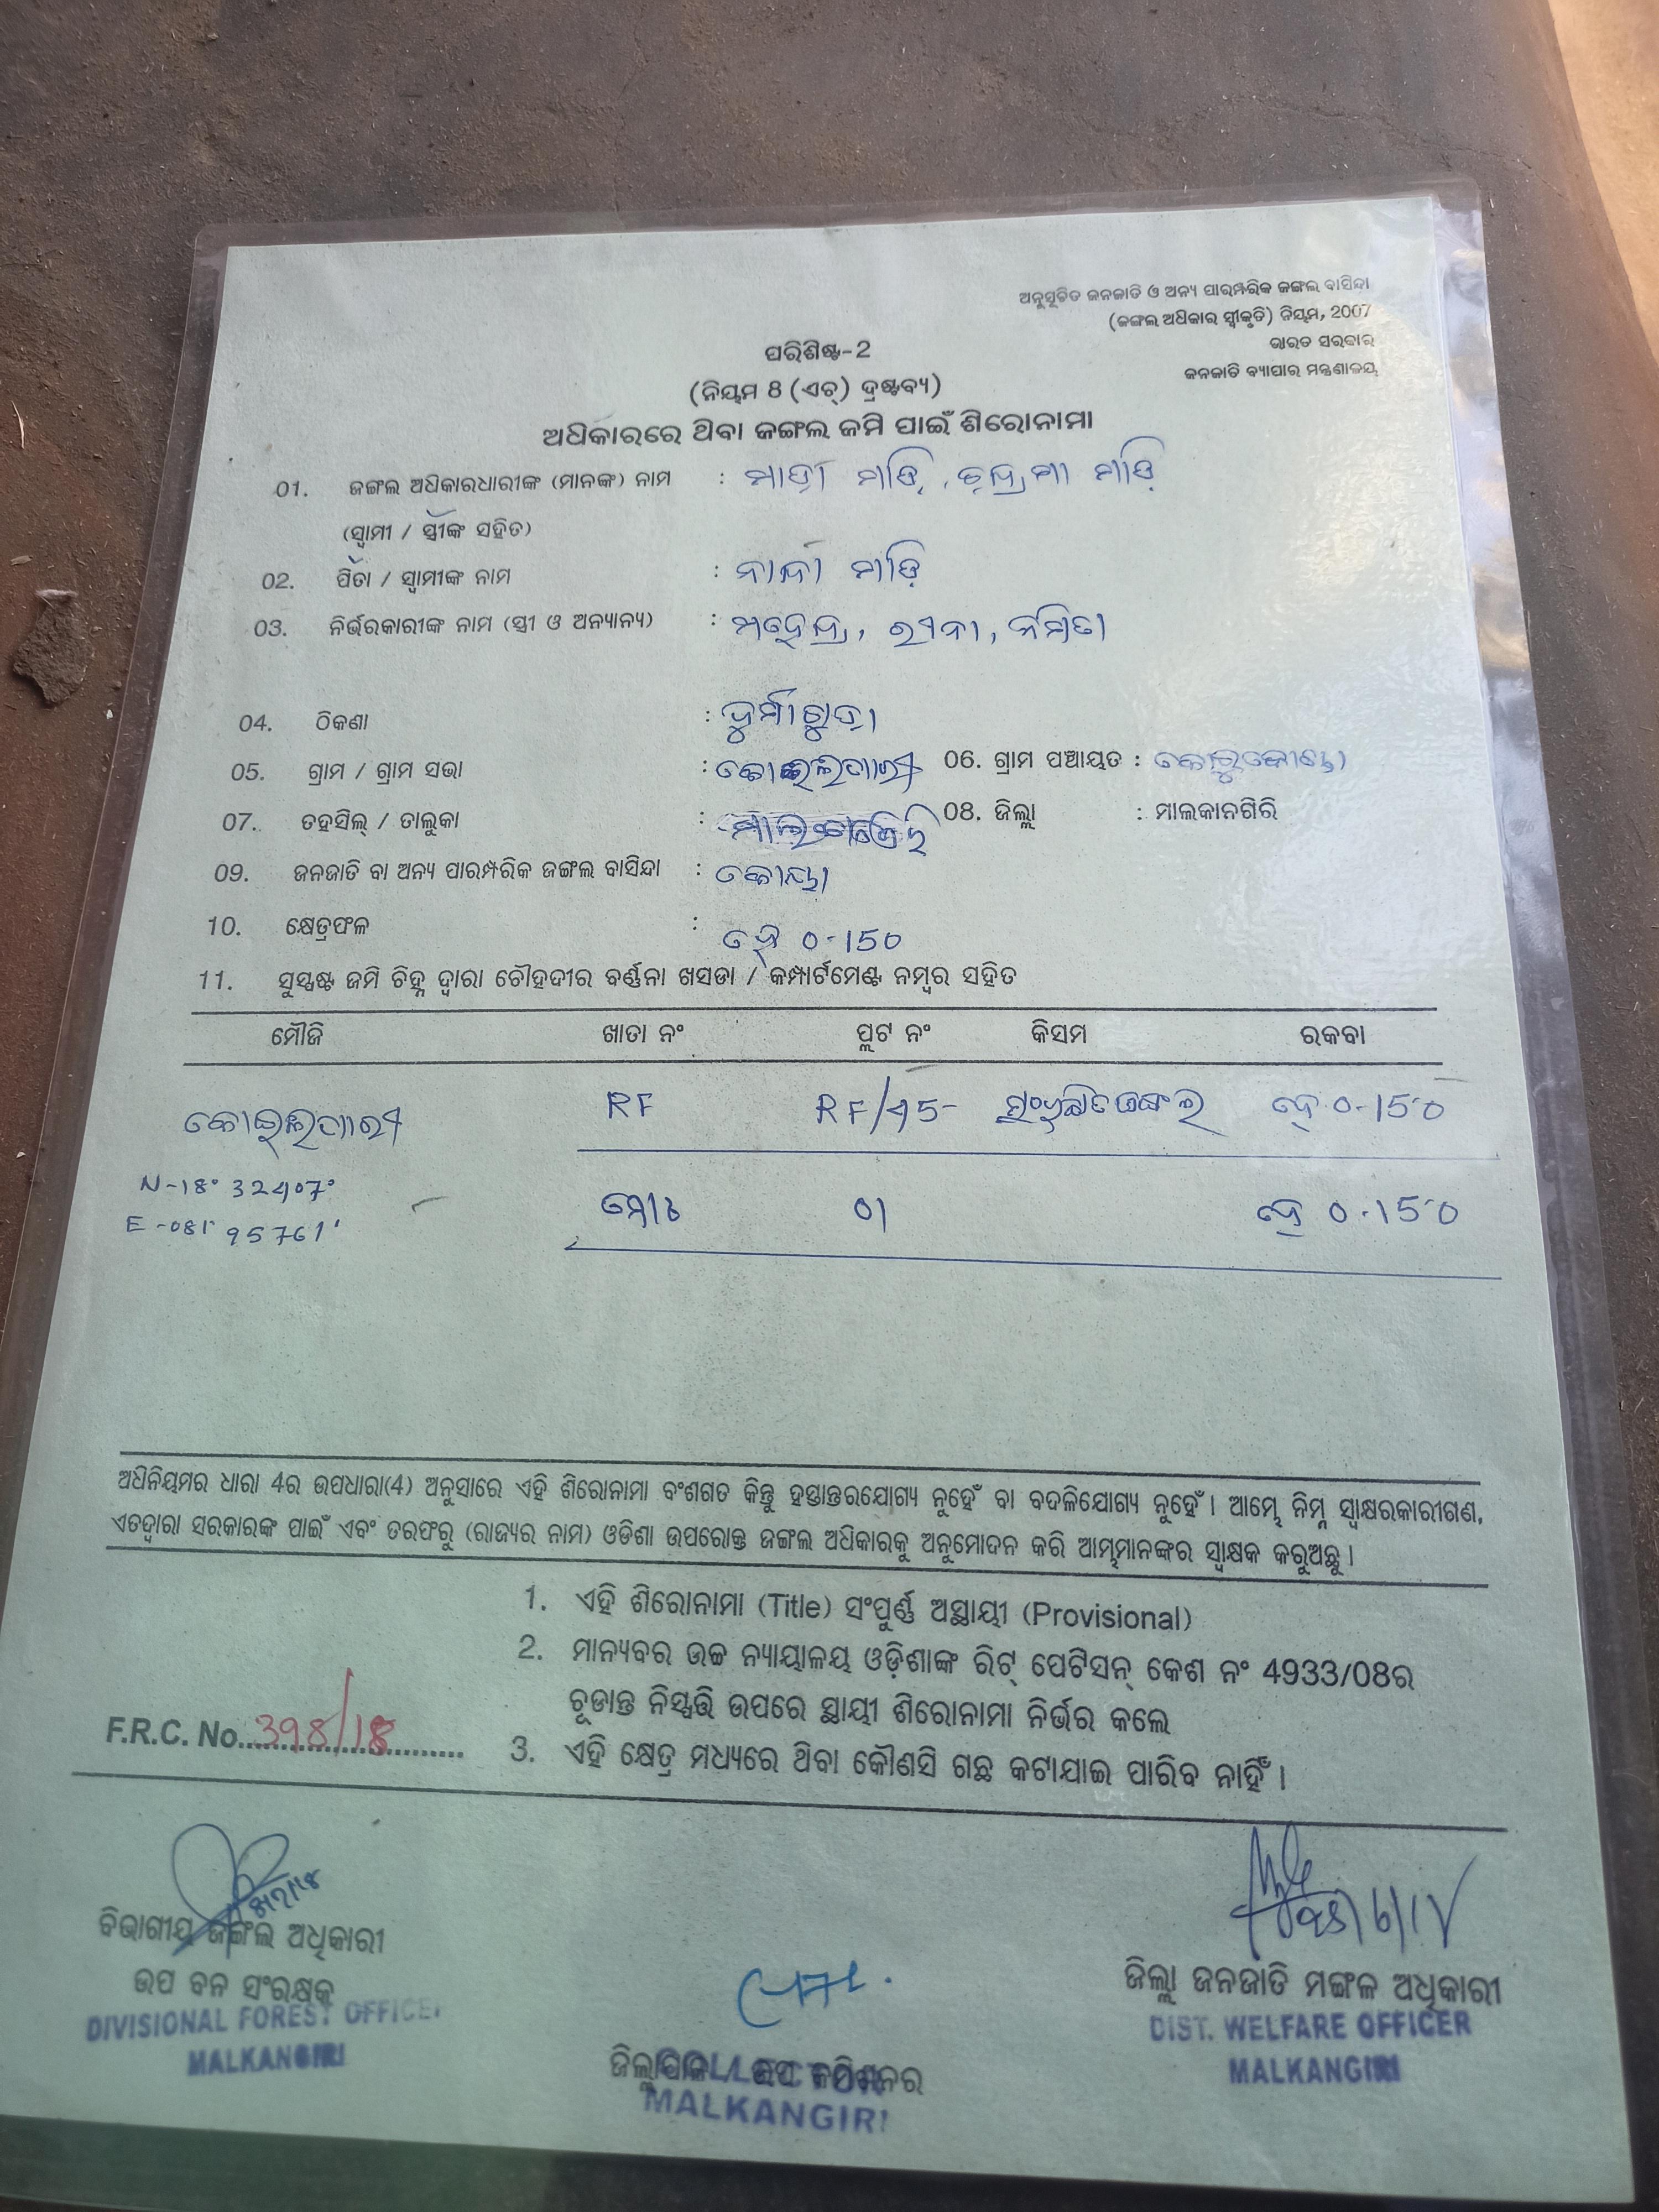 ଅନୁସୂଚିତ ଜନଜାତି ଓ ଅନ୍ୟ ପାରମ୍ପରିକ ଜଙ୍ଗଲ ବାସିନ୍ଦା
(ଜଙ୍ଗଲ ଅଧିକାର ସ୍ୱୀକୃତି) ନିୟମ, 2007
ଭାରତ ସରକାର
ଜନଜାତି ବ୍ୟାପାର ମନ୍ତ୍ରଣାଳୟ
ପରିଶିଷ୍ଟ-2
(ନିୟମ 8 (ଏଚ୍) ଦ୍ରଷ୍ଟବ୍ୟ)
ଅଧିକାରରେ ଥିବା ଜଙ୍ଗଲ ଜମି ପାଇଁ ଶିରୋନାମା
01. ଜଙ୍ଗଲ ଅଧିକାରଧାରୀଙ୍କ (ମାନଙ୍କ) ନାମ : ମାଡ଼ି, ଚନ୍ଦ୍ରମା ମାଡ଼ି
(ସ୍ୱାମୀ / ସ୍ତ୍ରୀଙ୍କ ସହିତ)
02. ପିତା / ସ୍ୱାମୀଙ୍କ ନାମ : ମାଡ଼ି
03. ନିର୍ଭରକାରୀଙ୍କ ନାମ (ସ୍ତ୍ରୀ ଓ ଅନ୍ୟାନ୍ୟ) : ମହେନ୍ଦ୍ର, ନମିତା
04. ଠିକଣା :
05. ଗ୍ରାମ / ଗ୍ରାମ ସଭା : କୋଇଲଗାରୀ 06. ଗ୍ରାମ ପଞ୍ଚାୟତ :
07. ତହସିଲ୍ / ତାଲୁକା : 08. ଜିଲ୍ଲା : ମାଲକାନଗିରି
09. ଜନଜାତି ବା ଅନ୍ୟ ପାରମ୍ପରିକ ଜଙ୍ଗଲ ବାସିନ୍ଦା : କୋୟା
10. କ୍ଷେତ୍ରଫଳ : ହେ 0-150
11. ସୁସ୍ପଷ୍ଟ ଜମି ଚିହ୍ନ ଦ୍ୱାରା ଚୌହଦୀର ବର୍ଣ୍ଣନା ଖସଡା / କମ୍ପାର୍ଟମେଣ୍ଟ ନମ୍ବର ସହିତ
ମୌଜି ଖାତା ନଂ ପ୍ଲଟ ନଂ କିସମ ରକବା
କୋଇଲଗାରୀ RF RF/45 ହେ 0-150
N-18° 32407°
E-081° 95761'
ମୋଟ 01 ହେ 0-150
ଅଧିନିୟମର ଧାରା 4ର ଉପଧାରା(4) ଅନୁସାରେ ଏହି ଶିରୋନାମା ବଂଶଗତ କିନ୍ତୁ ହସ୍ତାନ୍ତରଯୋଗ୍ୟ ନୁହେଁ ବା ବଦଳିଯୋଗ୍ୟ ନୁହେଁ । ଆମ୍ଭେ ନିମ୍ନ ସ୍ୱାକ୍ଷରକାରୀଗଣ,
ଏତଦ୍ୱାରା ସରକାରଙ୍କ ପାଇଁ ଏବଂ ତରଫରୁ (ରାଜ୍ୟର ନାମ) ଓଡିଶା ଉପରୋକ୍ତ ଜଙ୍ଗଲ ଅଧିକାରକୁ ଅନୁମୋଦନ କରି ଆମ୍ଭମାନଙ୍କର ସ୍ୱାକ୍ଷକ କରୁଅଛୁ ।
1. ଏହି ଶିରୋନାମା (Title) ସଂପୂର୍ଣ୍ଣ ଅସ୍ଥାୟୀ (Provisional)
2. ମାନ୍ୟବର ଉଚ୍ଚ ନ୍ୟାୟାଳୟ ଓଡ଼ିଶାଙ୍କ ରିଟ୍ ପେଟିସନ୍ କେଶ ନଂ 4933/08ର
ଚୂଡାନ୍ତ ନିସ୍ପତ୍ତି ଉପରେ ସ୍ଥାୟୀ ଶିରୋନାମା ନିର୍ଭର କଲେ
F.R.C. No. 398/18
3. ଏହି କ୍ଷେତ୍ର ମଧ୍ୟରେ ଥିବା କୌଣସି ଗଛ କଟାଯାଇ ପାରିବ ନାହିଁ ।
ବିଭାଗୀୟ ଜଙ୍ଗଲ ଅଧିକାରୀ
ଉପ ବନ ସଂରକ୍ଷକ
DIVISIONAL FOREST OFFICER
MALKANGIRI
ଜିଲ୍ଲାପାଳ / ଉପ କମିଶନର
COLLECTOR
MALKANGIRI
ଜିଲ୍ଲା ଜନଜାତି ମଙ୍ଗଳ ଅଧିକାରୀ
DIST. WELFARE OFFICER
MALKANGIRI